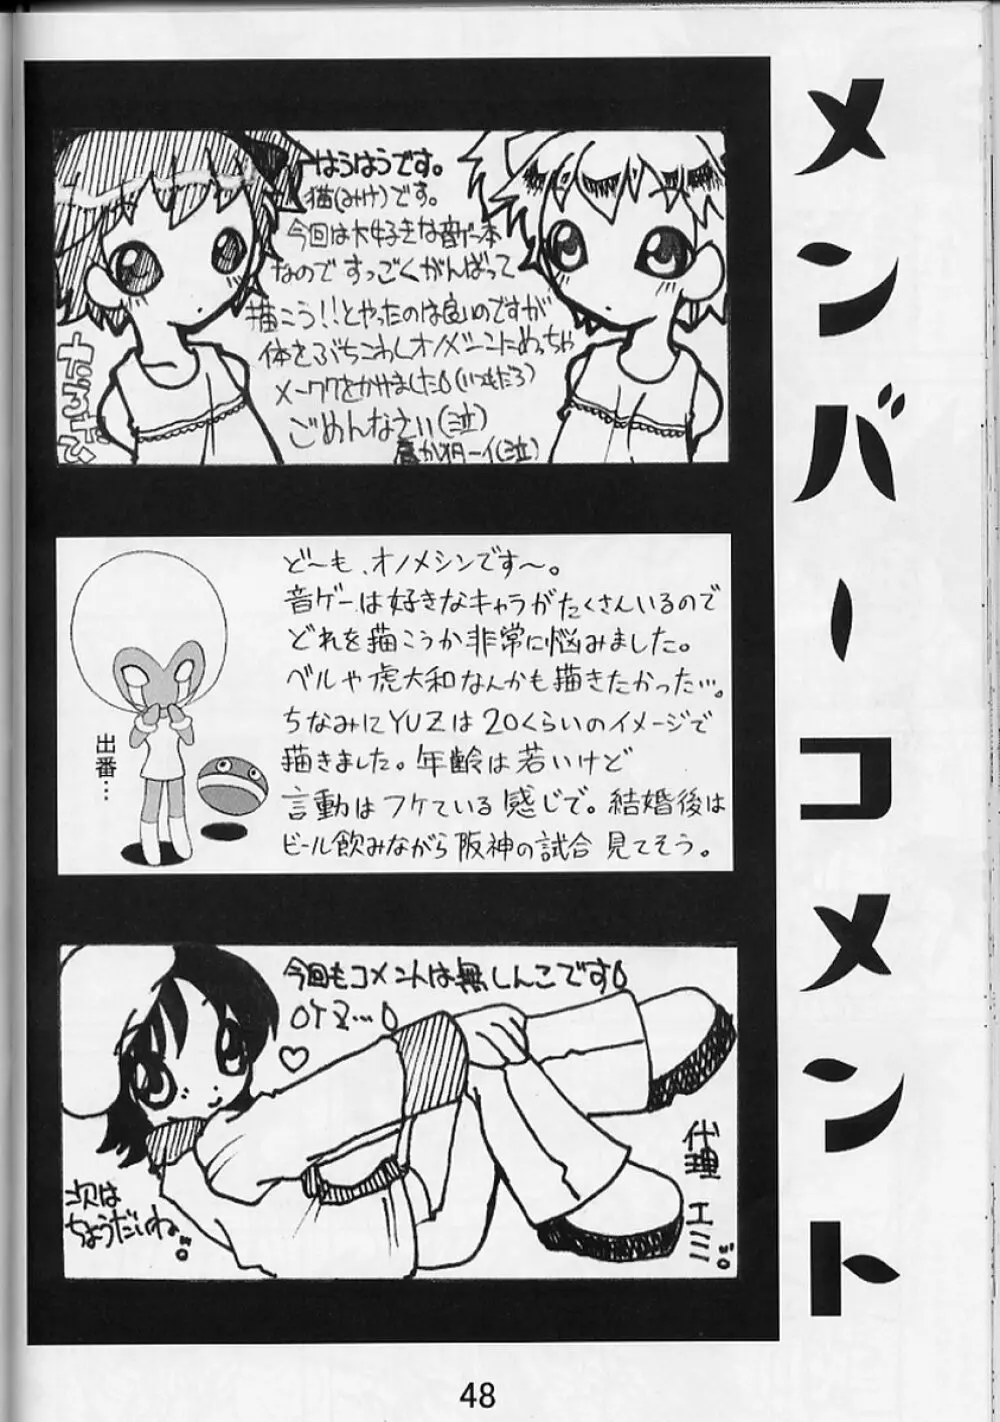 メンバーコメント
はうはうです。
猫(みけ)です。
今回は大好きな音ゲー本
なのですっごくがんばって
描こう!!とやったのは良いのですが
体をぶちこわしオノメシンにめっちゃ
メーワクをかけました(いつもだろ)
ごめんなさい(泣)
ど〜も、オノメシンです〜。
音ゲーは好きなキャラがたくさんいるので
どれを描こうか非常に悩みました。
ベルや虎大和なんかも描きたかった…。
ちなみにYUZは20くらいのイメージで
描きました。年齢は若いけど
言動はフケている感じで。結婚後は
ビール飲みながら阪神の試合見てそう。
出番…
今回もコメントは無しんこです
OTZ…
♡
次は
ちょうだいね
代理 エミ
48